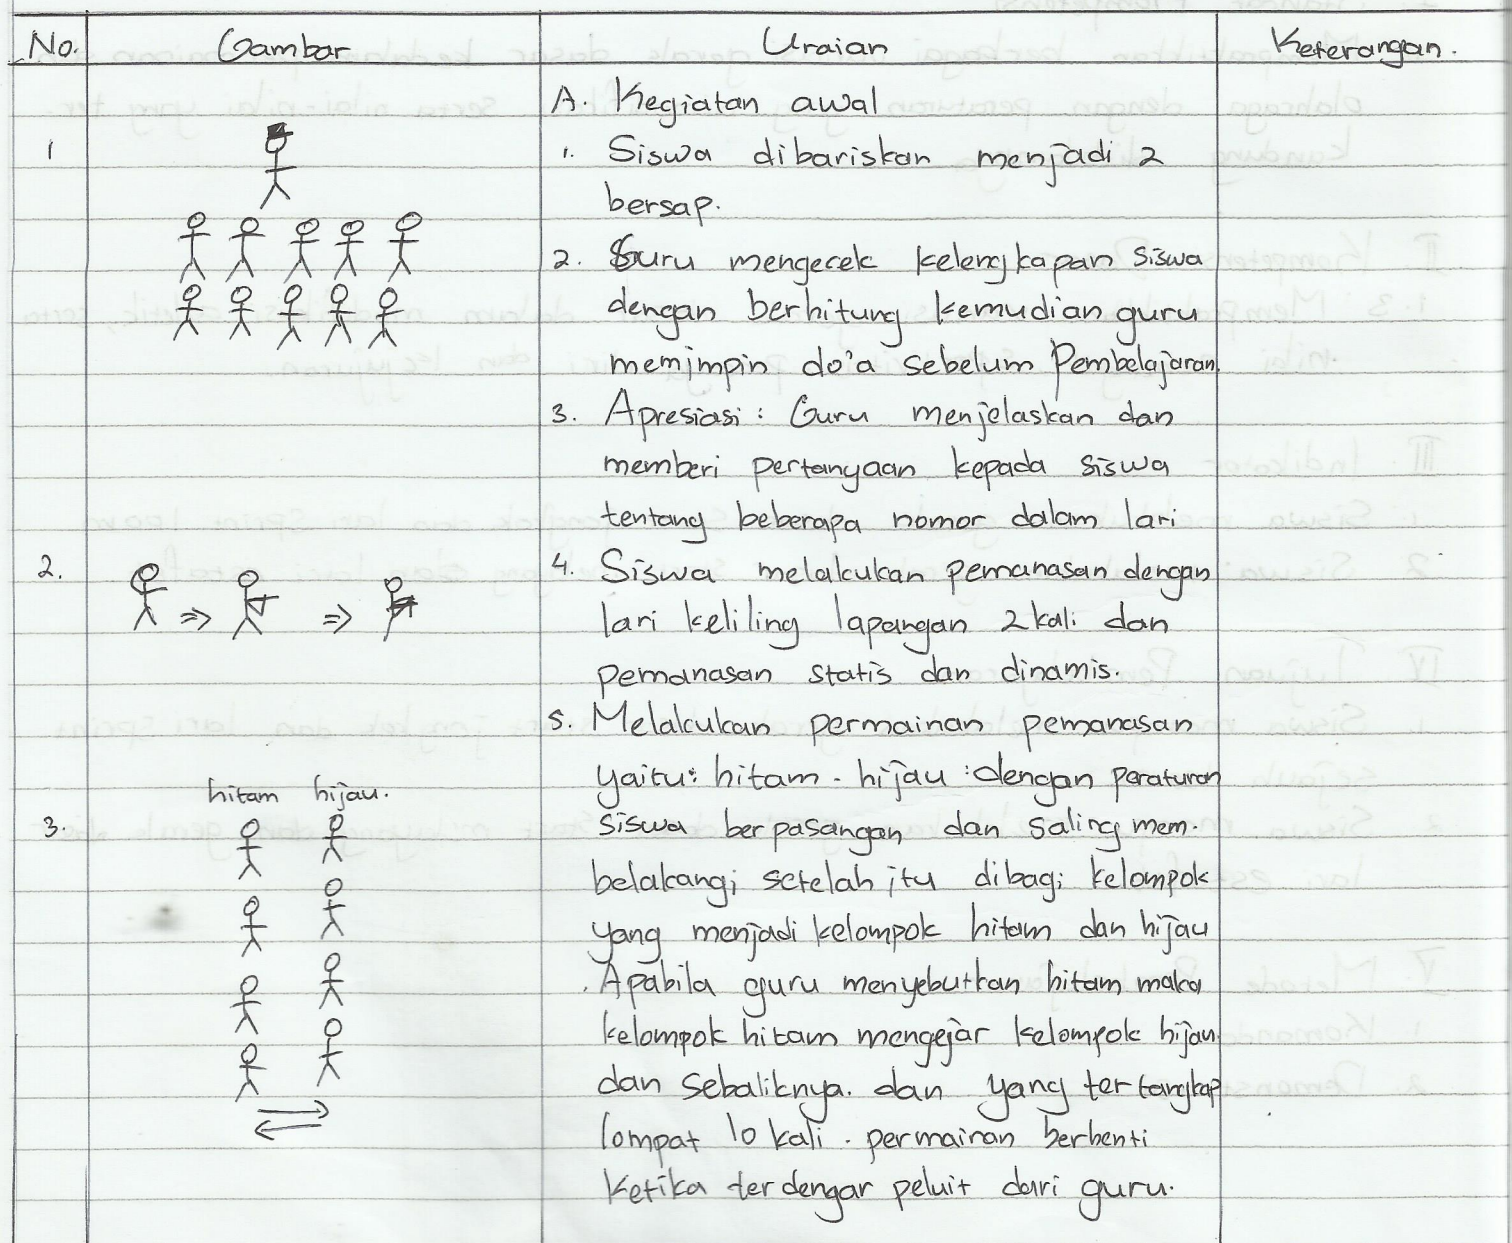 No. Gambar Uraian Keterangan.
A. Kegiatan awal
1 1. Siswa dibariskan menjadi 2
bersap.
2. Guru mengecek kelengkapan siswa
dengan berhitung kemudian guru
memimpin do'a sebelum Pembelajaran
3. Apresiasi : Guru menjelaskan dan
memberi pertanyaan kepada siswa
tentang beberapa nomor dalam lari
2. 4. Siswa melakukan pemanasan dengan
lari keliling lapangan 2 kali dan
pemanasan statis dan dinamis.
5. Melakukan permainan pemanasan
yaitu: hitam - hijau : dengan peraturan
hitam hijau.
3. siswa berpasangan dan saling mem-
belakangi setelah itu dibagi kelompok
yang menjadi kelompok hitam dan hijau
. Apabila guru menyebutkan hitam maka
kelompok hitam mengejar kelompok hijau
dan sebaliknya. dan yang tertangkap
lompat 10 kali. permainan berhenti
ketika terdengar peluit dari guru.